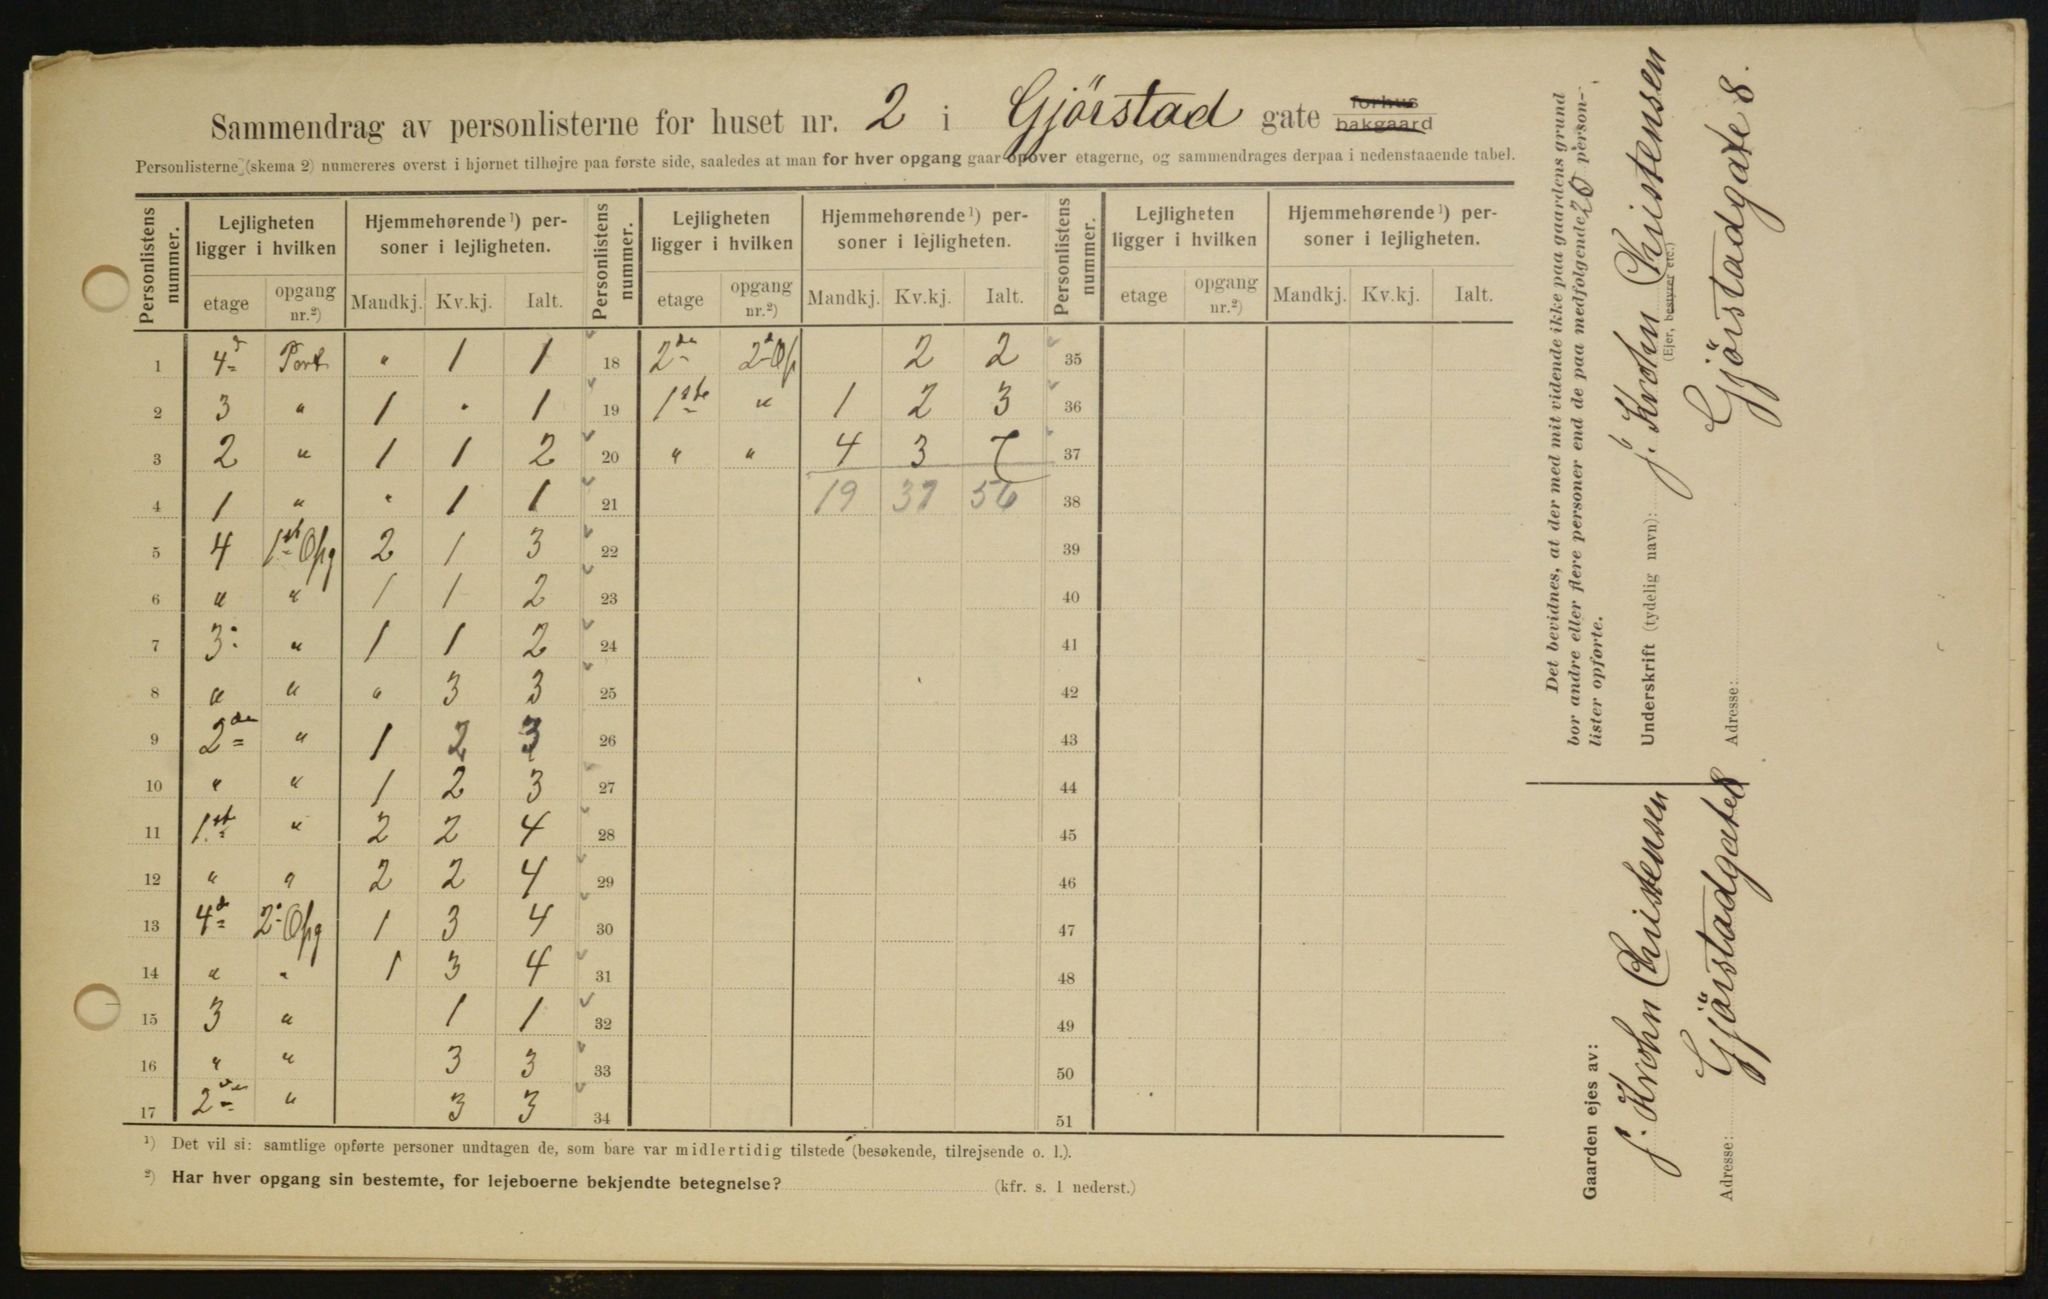 Sammendrag av personlisterne for huset nr. 2 i Gjörstad gate forhus bakgaard
Personlisterne (skema 2) numereres øverst i hjørnet tilhøjre paa første side, saaledes at man for hver opgang gaar opover etagerne, og sammendrages derpaa i nedenstaaende tabel.
Personlistens nummer. Lejligheten ligger i hvilken Hjemmehørende ¹) personer i lejligheten. Personlistens nummer. Lejligheten ligger i hvilken Hjemmehørende ¹) personer i lejligheten. Personlistens nummer. Lejligheten ligger i hvilken Hjemmehørende ¹) personer i lejligheten.
etage opgang nr.²) Mandkj. Kv.kj. Ialt. etage opgang nr.²) Mandkj. Kv.kj. Ialt. etage opgang nr.²) Mandkj. Kv.kj. Ialt.
1 4d Port " 1 1 18 2den 2d Op 2 2 35
2 3 " 1 " 1 19 1ste " 1 2 3 36
3 2 " 1 1 2 20 " " 4 3 7 37
4 1 " " 1 1 21 19 37 56 38
5 4 1st Opg 2 1 3 22 39
6 " " 1 1 2 23 40
7 3 " 1 1 2 24 41
8 " " " 3 3 25 42
9 2den " 1 2 3 26 43
10 " " 1 2 3 27 44
11 1st " 2 2 4 28 45
12 " " 2 2 4 29 46
13 4d 2 Opg 1 3 4 30 47
14 " " 1 3 4 31 48
15 3 " 1 1 32 49
16 " " 3 3 33 50
17 2den " 3 3 34 51
¹) Det vil si: samtlige opførte personer undtagen de, som bare var midlertidig tilstede (besøkende, tilrejsende o. l.).
²) Har hver opgang sin bestemte, for lejeboerne bekjendte betegnelse? (kfr. s. 1 nederst.)
Det bevidnes, at der med mit vidende ikke paa gaardens grund
bor andre eller flere personer end de paa medfølgende 20 person-
lister opførte.
Underskrift (tydelig navn): J. Krohn Christensen
(Ejer, bestyrer etc.)
Adresse: Gjörstadgate 8.
Gaarden ejes av:
J. Krohn Christensen
Adresse: Gjörstadgate 8